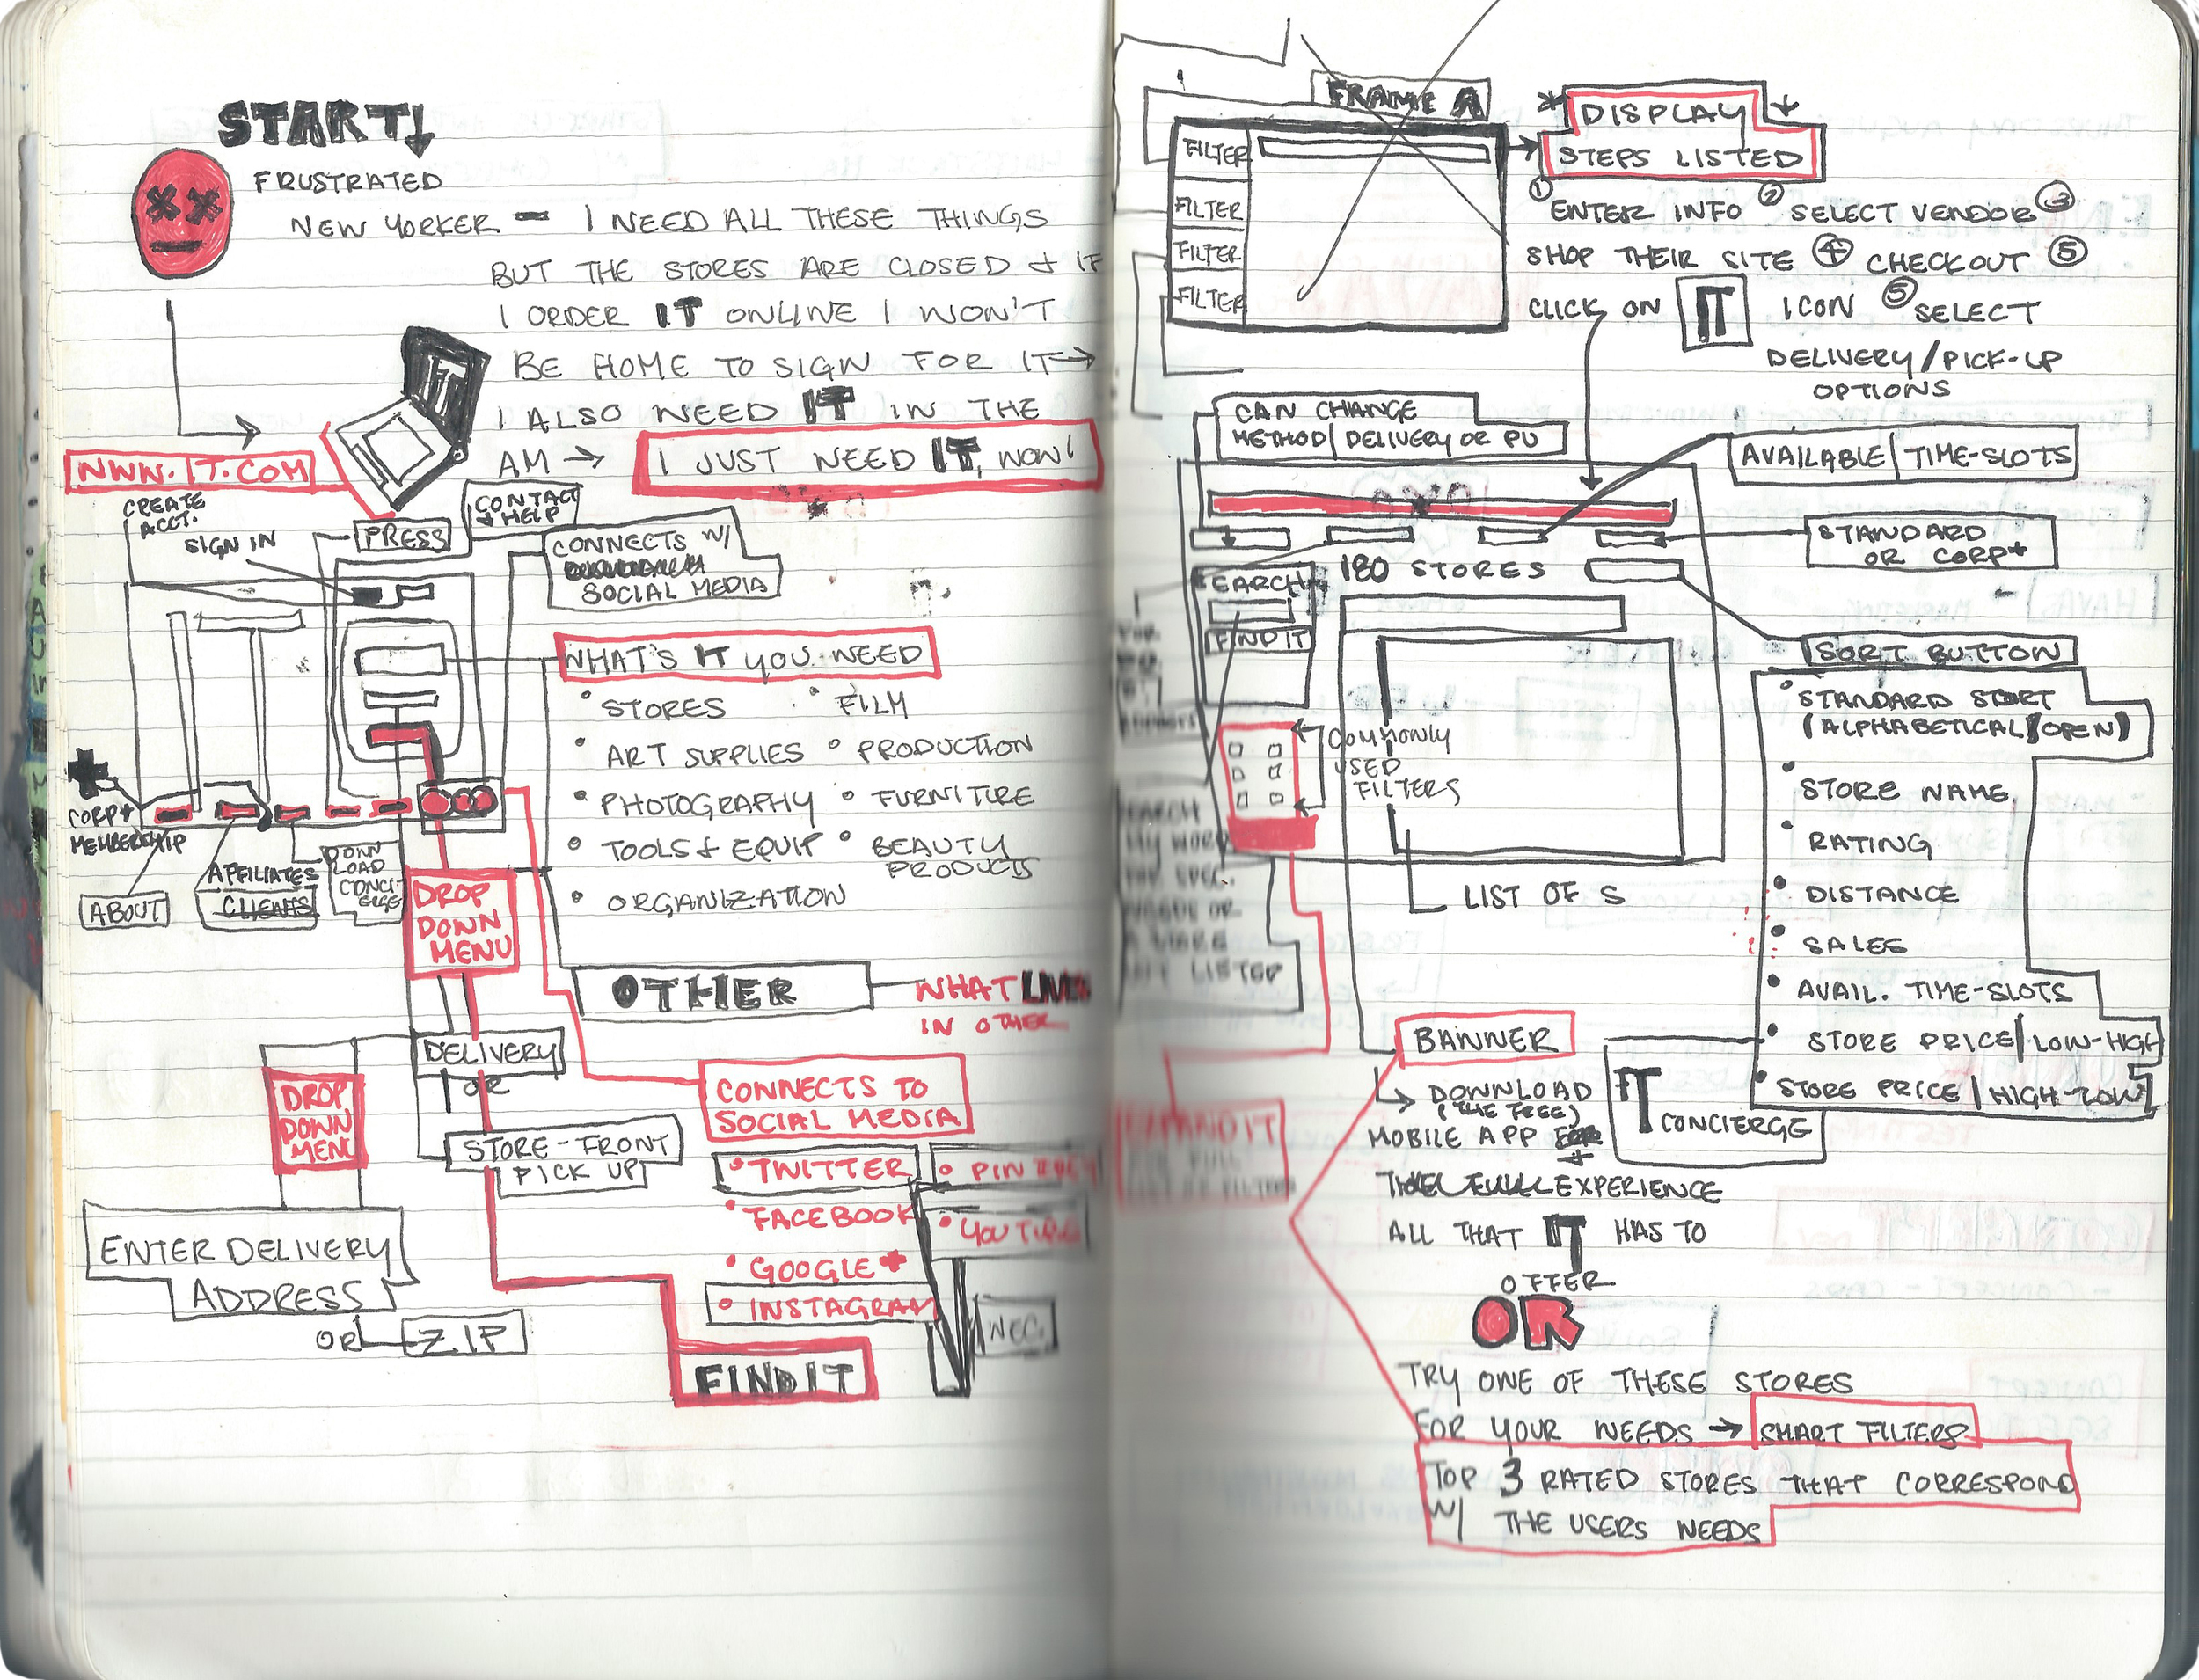 START!
FRUSTRATED
NEW YORKER - I NEED ALL THESE THINGS
BUT THE STORES ARE CLOSED + IF
I ORDER IT ONLINE I WON'T
BE HOME TO SIGN FOR IT →
IT
I ALSO NEED IT IN THE
AM → I JUST NEED IT, NOW!
WWW.IT.COM
CREATE
ACCT.
SIGN IN
PRESS
CONTACT
+ HELP
CONNECTS W/
SOCIAL MEDIA
WHAT'S IT YOU NEED
• STORES
• ART SUPPLIES
• PHOTOGRAPHY
• TOOLS + EQUIP
• ORGANIZATION
• FILM
• PRODUCTION
• FURNITURE
• BEAUTY
PRODUCTS
CORP+
MEMBERSHIP
ABOUT
AFFILIATES
CLIENTS
DOWN
LOAD
CONCI
ERGE
DROP
DOWN
MENU
OTHER
WHAT LIVES
IN OTHER
DELIVERY
OR
STORE-FRONT
PICK UP
DROP
DOWN
MENU
ENTER DELIVERY
ADDRESS
OR ZIP
CONNECTS TO
SOCIAL MEDIA
• TWITTER
• FACEBOOK
• GOOGLE+
• INSTAGRAM
• YOUTUBE
NEC.
FIND IT
FRAME A
FILTER
FILTER
FILTER
FILTER
* DISPLAY
STEPS LISTED
① ENTER INFO ② SELECT VENDOR ③
SHOP THEIR SITE ④ CHECKOUT ⑤
CLICK ON IT ICON ⑤ SELECT
DELIVERY/PICK-UP
OPTIONS
CAN CHANGE
METHOD | DELIVERY OR PU
AVAILABLE | TIME-SLOTS
STANDARD
OR CORP+
SEARCH
FIND IT
180 STORES
SORT BUTTON
• STANDARD START
(ALPHABETICAL/OPEN)
• STORE NAME
• RATING
• DISTANCE
• SALES
• AVAIL. TIME-SLOTS
• STORE PRICE | LOW-HIGH
• STORE PRICE | HIGH-LOW
COMMONLY
USED
FILTERS
LIST OF S
SEARCH
OR
A STORE
NOT LISTED
EXPAND IT
FULL
BANNER
DOWNLOAD
(THE FREE)
MOBILE APP
+
EXPERIENCE
ALL THAT IT HAS TO
OFFER
IT CONCIERGE
OR
TRY ONE OF THESE STORES
FOR YOUR NEEDS → SMART FILTERS
TOP 3 RATED STORES THAT CORRESPOND
W/ THE USERS NEEDS